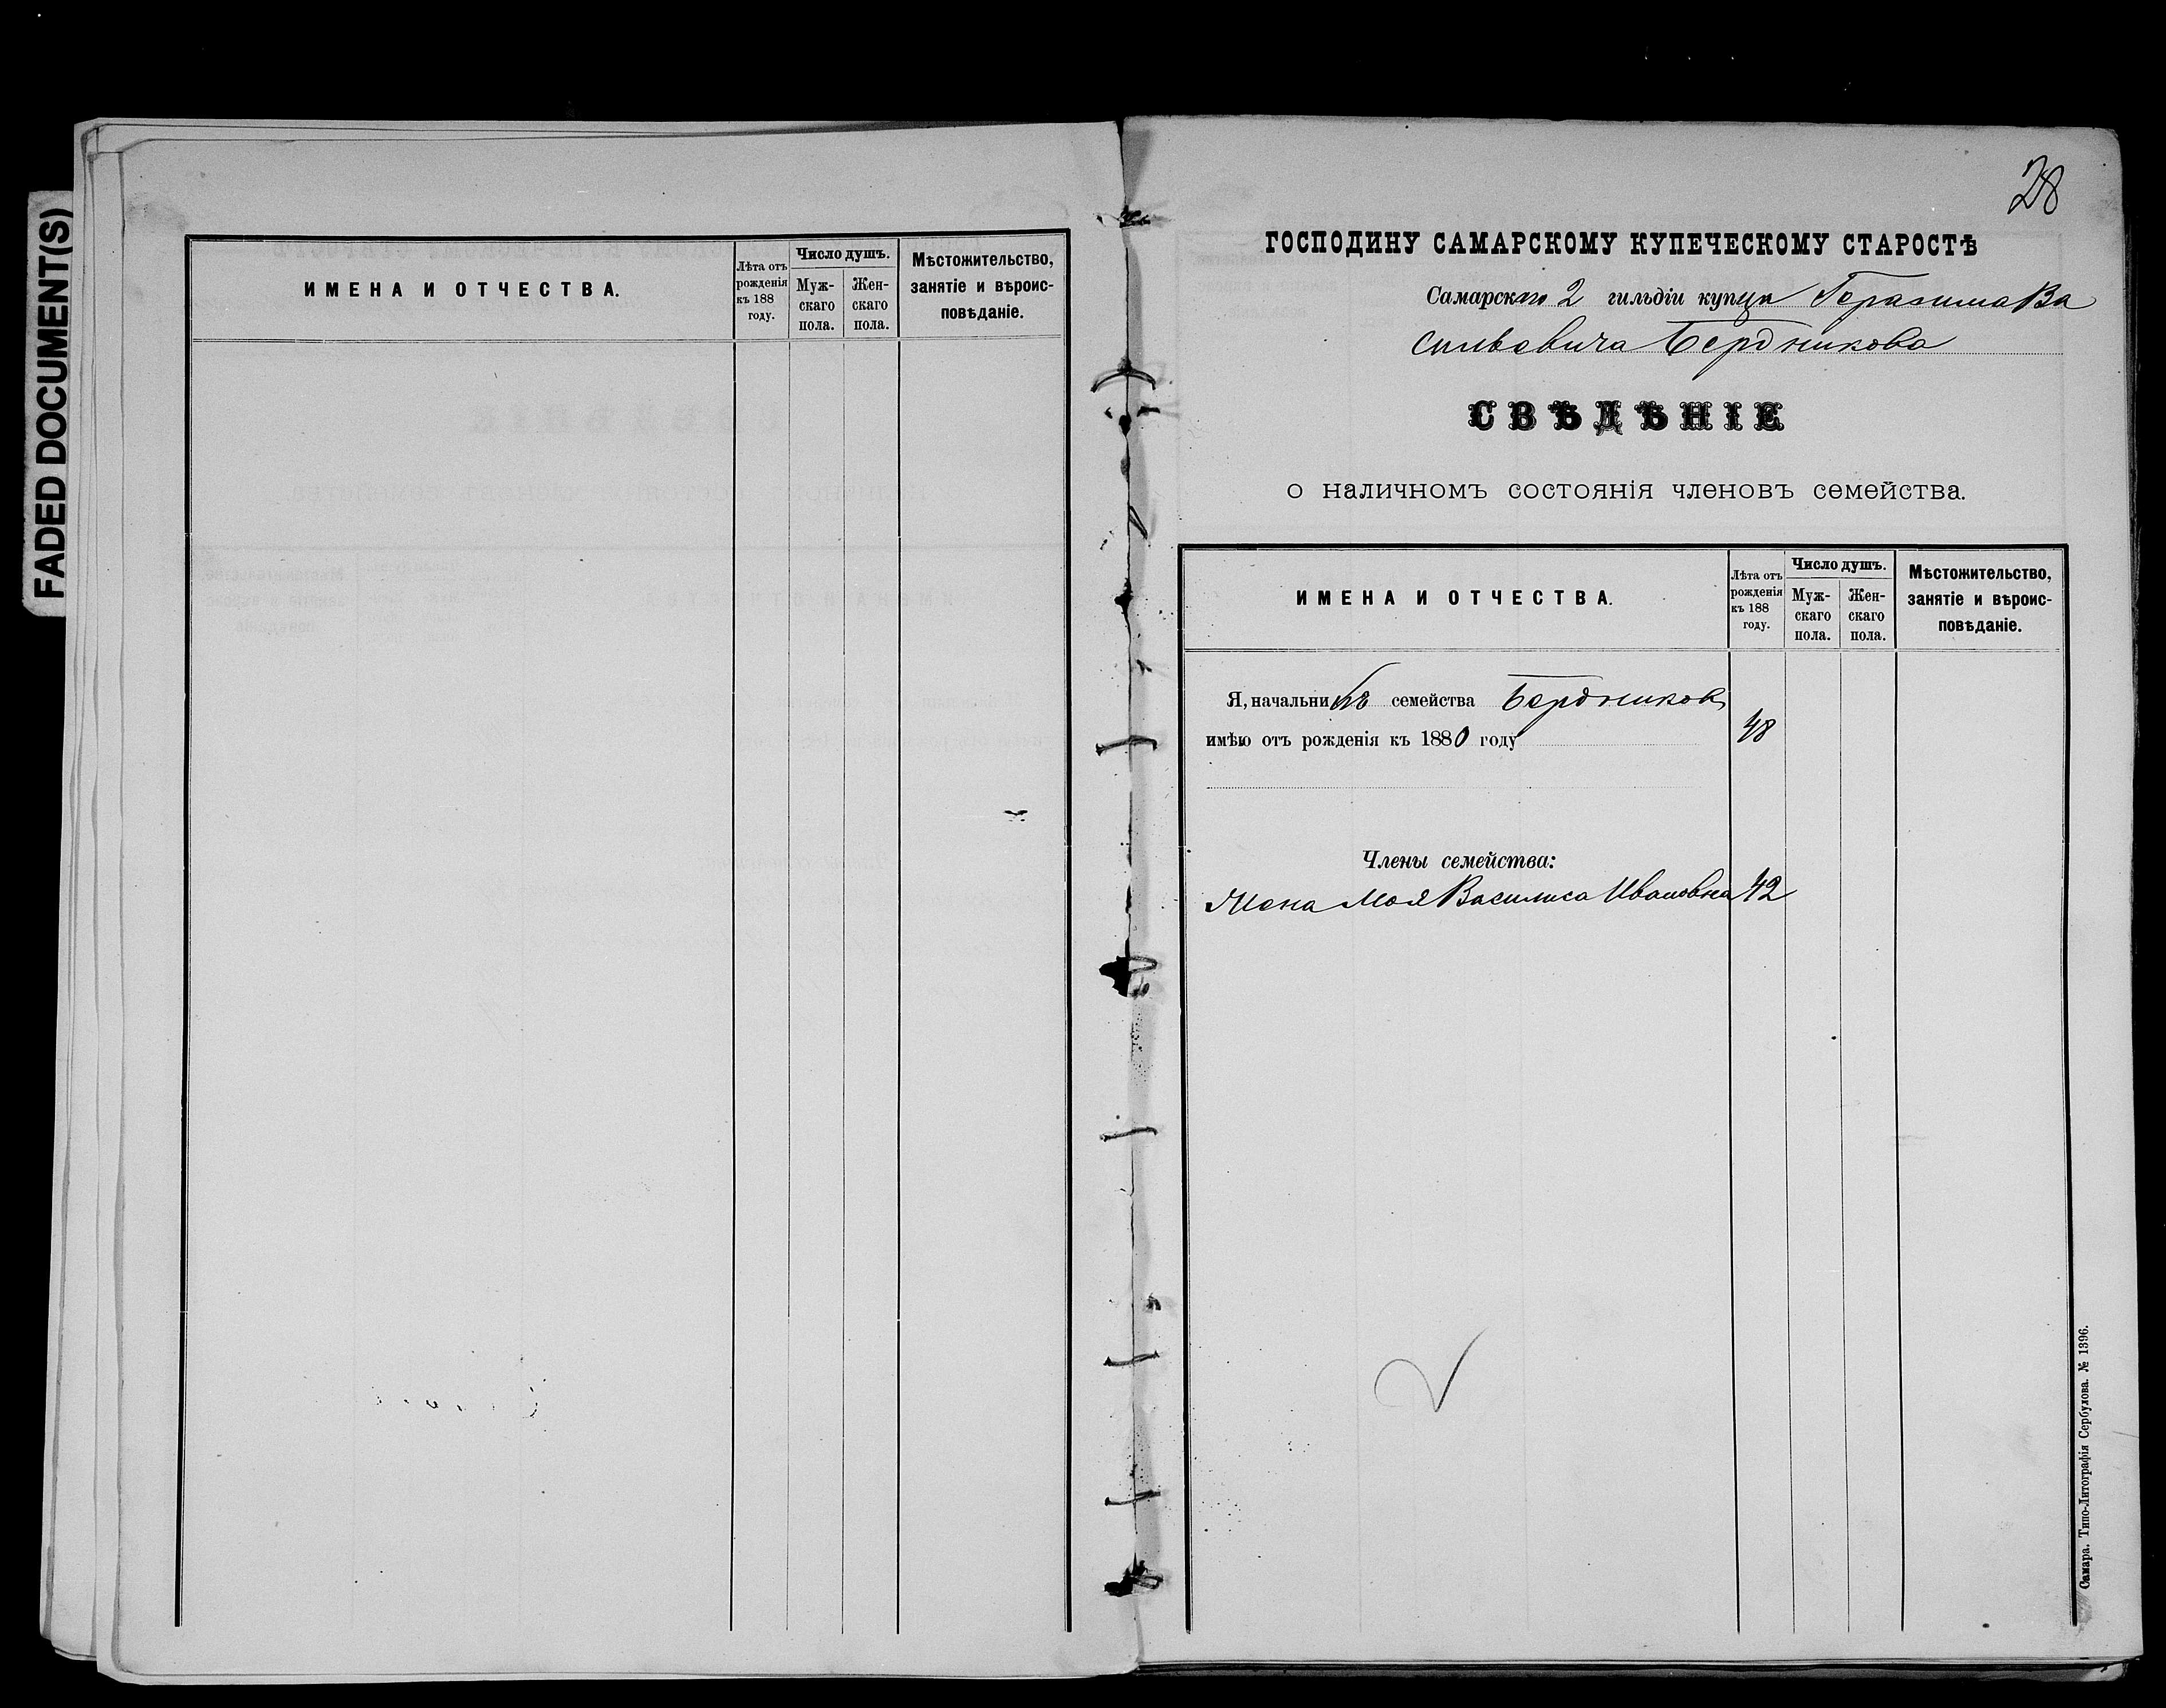 FADED DOCUMENT(S)
ИМЕНА И ОТЧЕСТВА.
Лѣта отъ
рожденія
къ 188
году.
Число душъ.
Муж-
скаго
пола.
Жен-
скаго
пола.
Мѣстожительство,
занятіе и вѣроис-
повѣданіе.
28
ГОСПОДИНУ САМАРСКОМУ КУПЕЧЕСКОМУ СТАРОСТѢ
Самарскаго 2 гильдіи купца Герасима Ва
сильевича Бердникова
СВѢДѢНІЕ
о наличномъ состоянія членовъ семейства.
ИМЕНА И ОТЧЕСТВА.
Лѣта отъ
рожденія
къ 188
году.
Число душъ.
Муж-
скаго
пола.
Жен-
скаго
пола.
Мѣстожительство,
занятіе и вѣроис-
повѣданіе.
Я, начальникъ семейства Бердников
имѣю отъ рожденія къ 1880 году 48
Члены семейства:
Жена Моя Василиса Ивановна 42
Самара. Типо-Литографія Сербулова. № 1396.